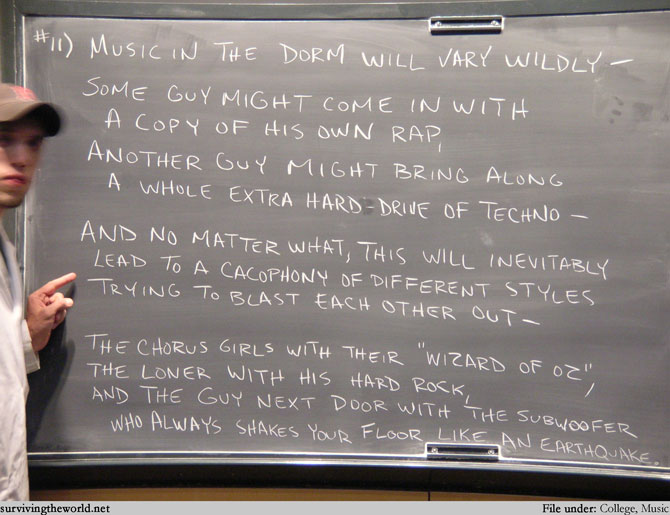 #11) MUSIC IN THE DORM WILL VARY WILDLY –
SOME GUY MIGHT COME IN WITH
A COPY OF HIS OWN RAP,
ANOTHER GUY MIGHT BRING ALONG
A WHOLE EXTRA HARD-DRIVE OF TECHNO –
AND NO MATTER WHAT, THIS WILL INEVITABLY
LEAD TO A CACOPHONY OF DIFFERENT STYLES
TRYING TO BLAST EACH OTHER OUT –
THE CHORUS GIRLS WITH THEIR "WIZARD OF OZ",
THE LONER WITH HIS HARD ROCK,
AND THE GUY NEXT DOOR WITH THE SUBWOOFER
WHO ALWAYS SHAKES YOUR FLOOR LIKE AN EARTHQUAKE.
survivingtheworld.net
File under: College, Music